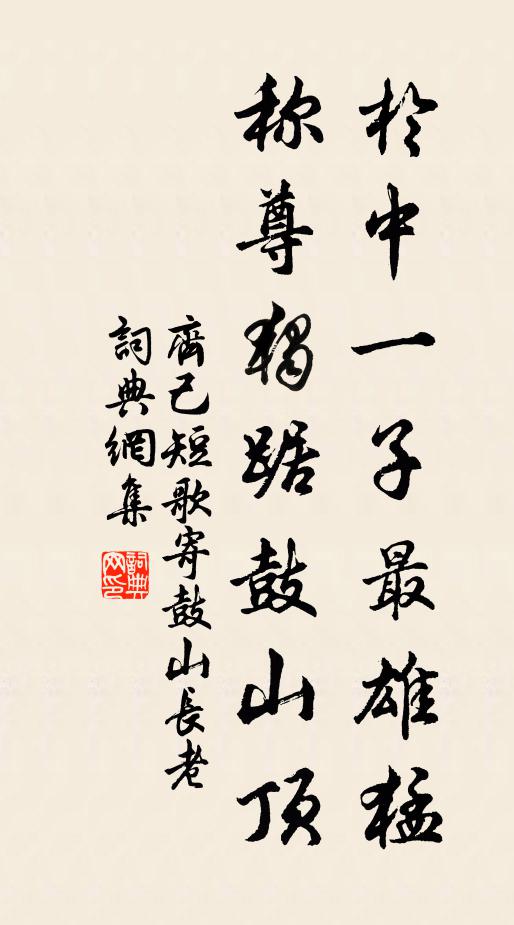 於中一子最雄猛
称尊独踞鼓山頂
齊己短歌寄鼓山長老
詞典網集
詞典网印